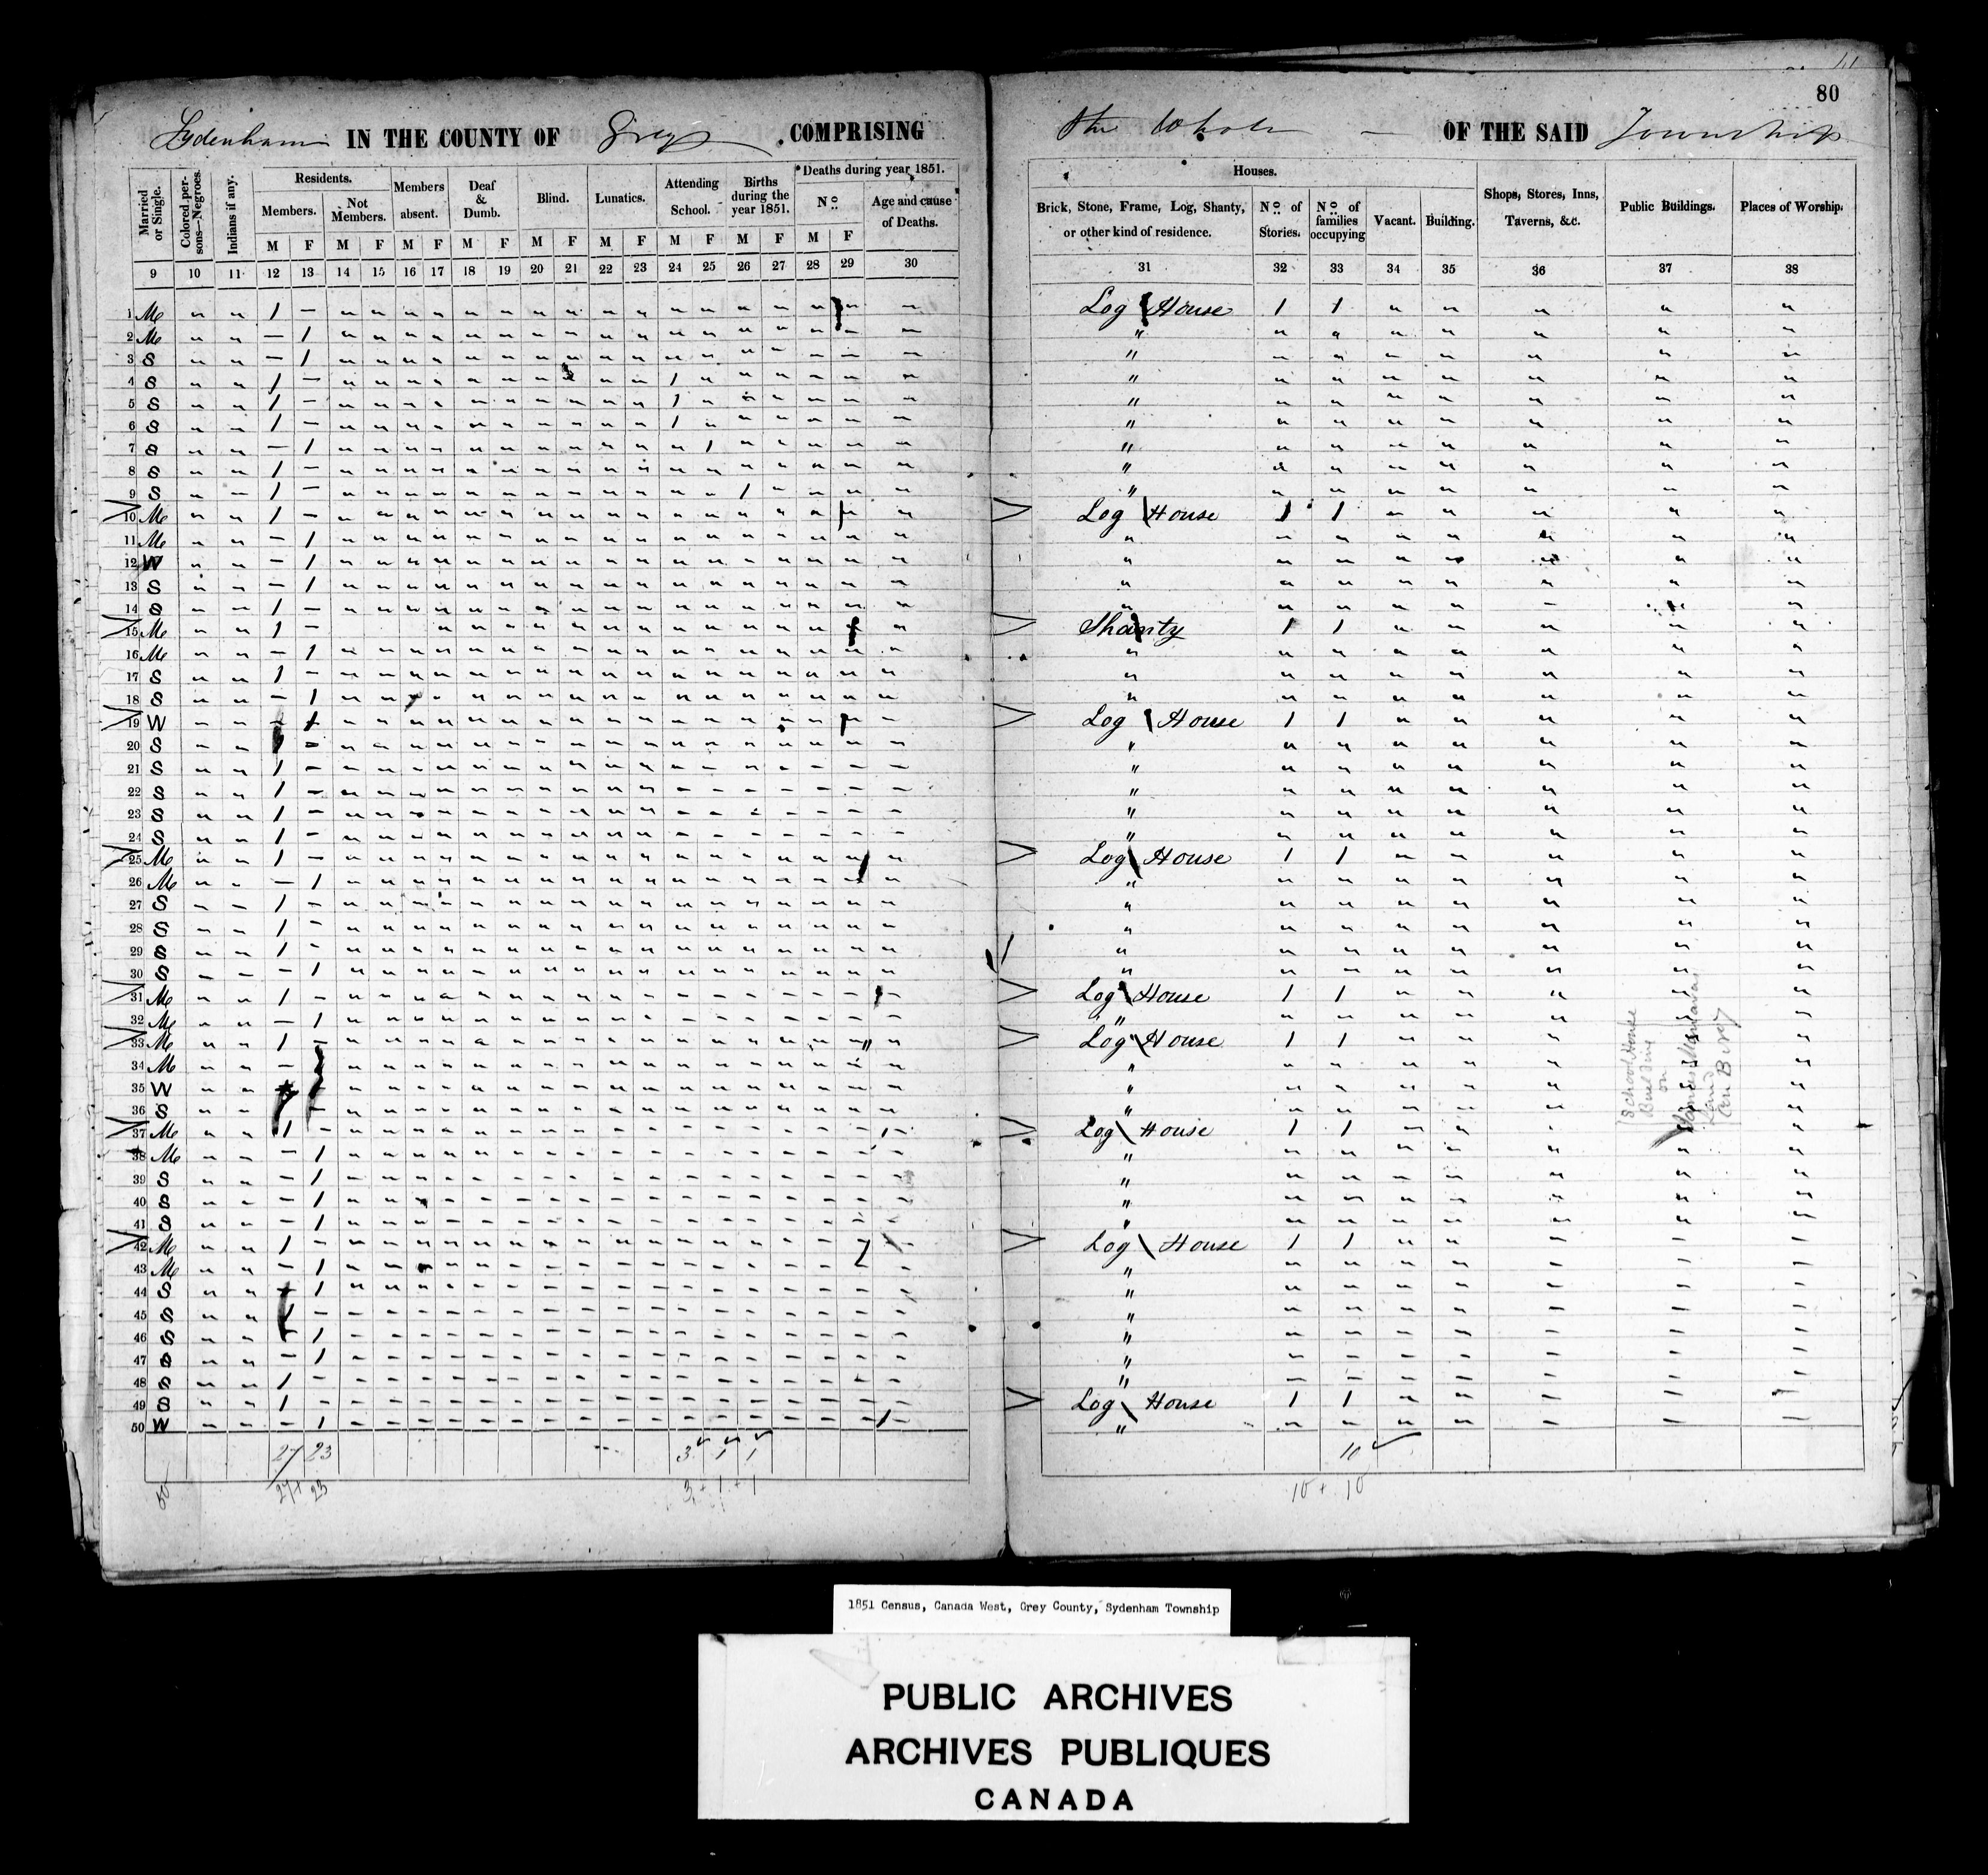 80
Sydenham IN THE COUNTY OF Grey COMPRISING the Whole — OF THE SAID Township
Married or Single.
Colored persons—Negroes.
Indians if any.
Residents.
Members.
Not Members.
Members absent.
Deaf & Dumb.
Blind.
Lunatics.
Attending School.
Births during the year 1851.
Deaths during year 1851.
No.
Age and cause of Deaths.
Houses.
Brick, Stone, Frame, Log, Shanty, or other kind of residence.
No. of Stories.
No. of families occupying
Vacant.
Building.
Shops, Stores, Inns, Taverns, &c.
Public Buildings.
Places of Worship.
M F M F M F M F M F M F M F M F M F
9 10 11 12 13 14 15 16 17 18 19 20 21 22 23 24 25 26 27 28 29 30 31 32 33 34 35 36 37 38
1 M 1 – Log House 1 1
2 M – 1 "
3 S – 1 "
4 S 1 – 1 "
5 S 1 – 1 "
6 S 1 – 1 "
7 S – 1 1 "
8 S 1 – "
9 S 1 – 1 "
10 M 1 – Log House 1 1
11 M – 1 "
12 W – 1 "
13 S – 1 "
14 S 1 – "
15 M 1 – Shanty 1 1
16 M – 1 "
17 S 1 – "
18 S – 1 "
19 W – 1 Log House 1 1
20 S 1 – "
21 S 1 – "
22 S 1 – "
23 S 1 – "
24 S 1 – "
25 M 1 – Log House 1 1
26 M – 1 "
27 S 1 – "
28 S 1 – "
29 S 1 – "
30 S – 1 "
31 M 1 – Log House 1 1
32 M – 1 "
33 M 1 – Log House 1 1
34 M – 1 "
35 W "
36 S "
37 M 1 – Log House 1 1
38 M – 1 "
39 S – 1 "
40 S – 1 "
41 S – 1 "
42 M 1 – Log House 1 1
43 M – 1 "
44 S – 1 "
45 S 1 – "
46 S – 1 "
47 S – 1 "
48 S 1 – "
49 S 1 – Log House 1 1
50 W – 1 "
School House
on
Land
27 23 3 1 1 10
50 27+ 23 3 + 1 + 1 10 + 10
1851 Census, Canada West, Grey County, Sydenham Township
PUBLIC ARCHIVES
ARCHIVES PUBLIQUES
CANADA